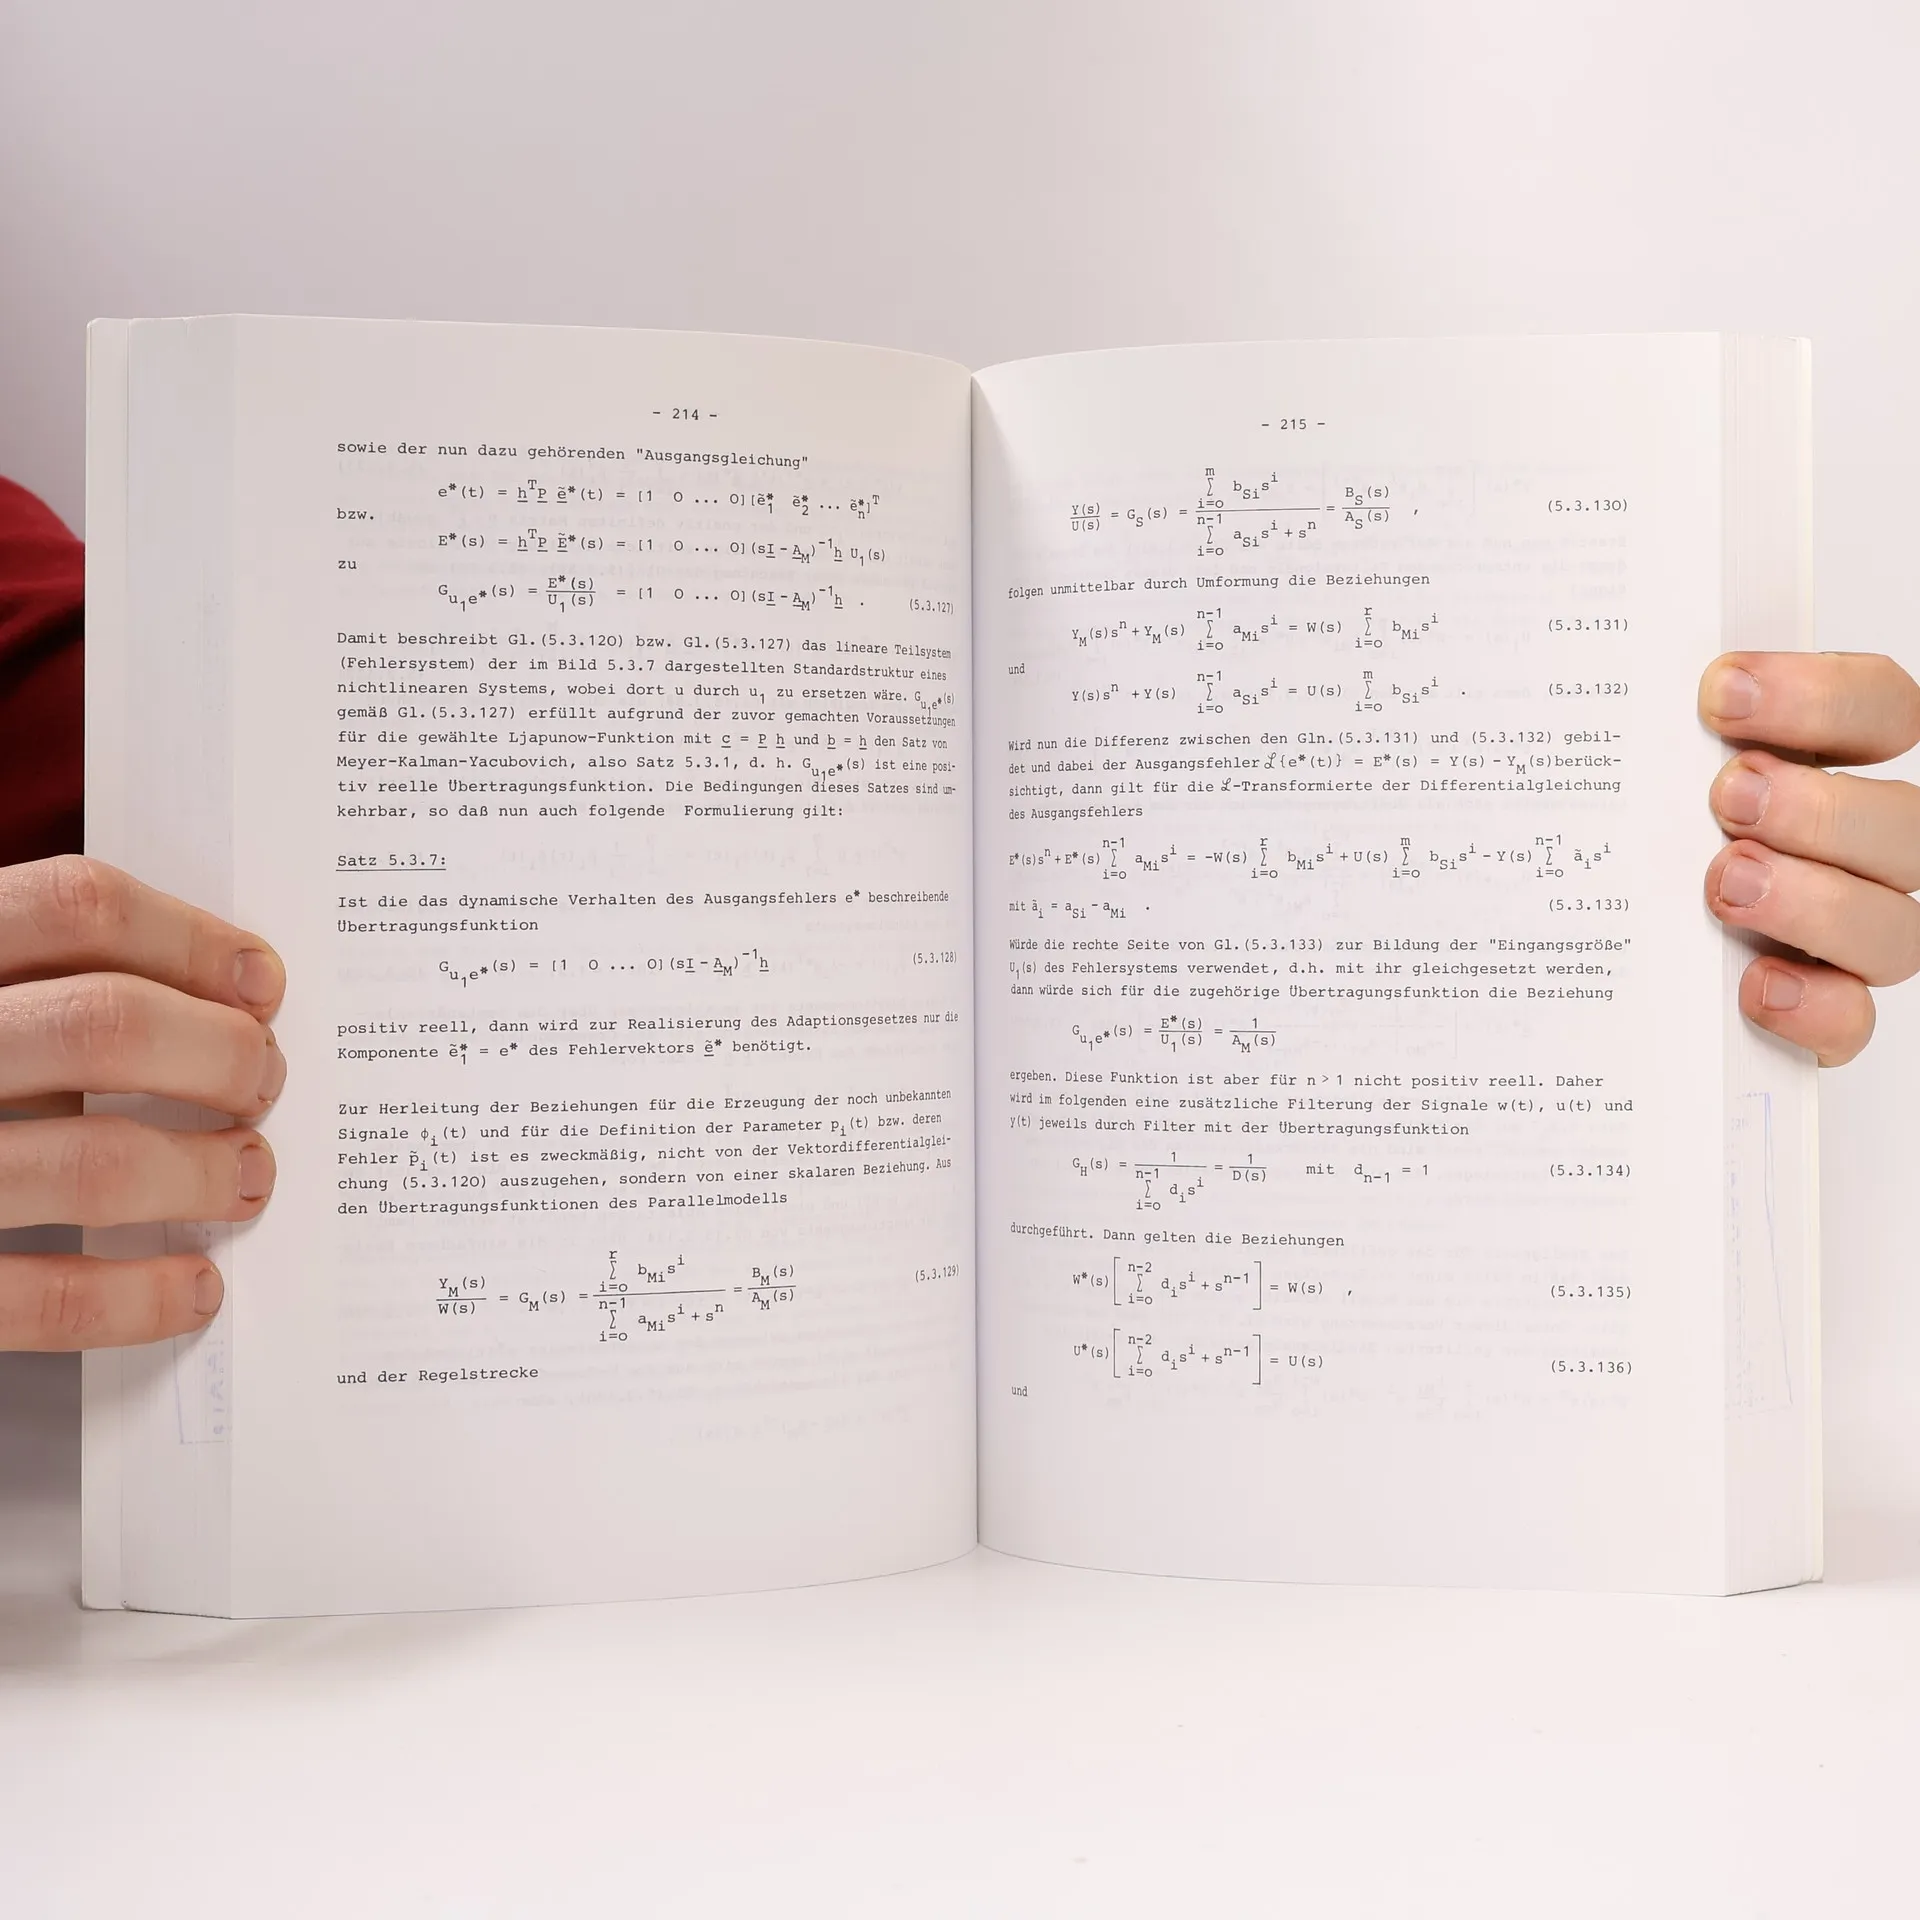 - 214 -
sowie der nun dazu gehörenden "Ausgangsgleichung"
e*(t) = h^T P ẽ*(t) = [1 0 ... 0][ẽ*_1 ẽ*_2 ... ẽ*_n]^T
bzw.
E*(s) = h^T P Ẽ*(s) = [1 0 ... 0](sI - A_M)^-1 h U_1(s)
zu
G_u_1e*(s) = E*(s)/U_1(s) = [1 0 ... 0](sI - A_M)^-1 h . (5.3.127)
Damit beschreibt Gl.(5.3.120) bzw. Gl.(5.3.127) das lineare Teilsystem
(Fehlersystem) der im Bild 5.3.7 dargestellten Standardstruktur eines
nichtlinearen Systems, wobei dort u durch u_1 zu ersetzen wäre. G_u_1e*(s)
gemäß Gl.(5.3.127) erfüllt aufgrund der zuvor gemachten Voraussetzungen
für die gewählte Ljapunow-Funktion mit c = P h und b = h den Satz von
Meyer-Kalman-Yacubovich, also Satz 5.3.1, d. h. G_u_1e*(s) ist eine posi-
tiv reelle Übertragungsfunktion. Die Bedingungen dieses Satzes sind um-
kehrbar, so daß nun auch folgende Formulierung gilt:
Satz 5.3.7:
Ist die das dynamische Verhalten des Ausgangsfehlers e* beschreibende
Übertragungsfunktion
G_u_1e*(s) = [1 0 ... 0](sI - A_M)^-1 h (5.3.128)
positiv reell, dann wird zur Realisierung des Adaptionsgesetzes nur die
Komponente ẽ*_1 = e* des Fehlervektors ẽ* benötigt.
Zur Herleitung der Beziehungen für die Erzeugung der noch unbekannten
Signale ϕ_i(t) und für die Definition der Parameter p_i(t) bzw. deren
Fehler p̃_i(t) ist es zweckmäßig, nicht von der Vektordifferentialglei-
chung (5.3.120) auszugehen, sondern von einer skalaren Beziehung. Aus
den Übertragungsfunktionen des Parallelmodells
Y_M(s)/W(s) = G_M(s) = (Σ_{i=0}^{r} b_Mi s^i)/(Σ_{i=0}^{n-1} a_Mi s^i + s^n) = B_M(s)/A_M(s) (5.3.129)
und der Regelstrecke
- 215 -
Y(s)/U(s) = G_S(s) = (Σ_{i=0}^{m} b_Si s^i)/(Σ_{i=0}^{n-1} a_Si s^i + s^n) = B_S(s)/A_S(s) , (5.3.130)
folgen unmittelbar durch Umformung die Beziehungen
Y_M(s)s^n + Y_M(s) Σ_{i=0}^{n-1} a_Mi s^i = W(s) Σ_{i=0}^{r} b_Mi s^i (5.3.131)
und
Y(s)s^n + Y(s) Σ_{i=0}^{n-1} a_Si s^i = U(s) Σ_{i=0}^{m} b_Si s^i . (5.3.132)
Wird nun die Differenz zwischen den Gln.(5.3.131) und (5.3.132) gebil-
det und dabei der Ausgangsfehler ℒ{e*(t)} = E*(s) = Y(s) - Y_M(s) berück-
sichtigt, dann gilt für die ℒ-Transformierte der Differentialgleichung
des Ausgangsfehlers
E*(s)s^n + E*(s) Σ_{i=0}^{n-1} a_Mi s^i = -W(s) Σ_{i=0}^{r} b_Mi s^i + U(s) Σ_{i=0}^{m} b_Si s^i - Y(s) Σ_{i=0}^{n-1} ã_i s^i
mit ã_i = a_Si - a_Mi . (5.3.133)
Würde die rechte Seite von Gl.(5.3.133) zur Bildung der "Eingangsgröße"
U_1(s) des Fehlersystems verwendet, d.h. mit ihr gleichgesetzt werden,
dann würde sich für die zugehörige Übertragungsfunktion die Beziehung
G_u_1e*(s) = E*(s)/U_1(s) = 1/A_M(s)
ergeben. Diese Funktion ist aber für n > 1 nicht positiv reell. Daher
wird im folgenden eine zusätzliche Filterung der Signale w(t), u(t) und
y(t) jeweils durch Filter mit der Übertragungsfunktion
G_H(s) = 1/(Σ_{i=0}^{n-1} d_i s^i) = 1/D(s) mit d_n-1 = 1 (5.3.134)
durchgeführt. Dann gelten die Beziehungen
W*(s)[Σ_{i=0}^{n-2} d_i s^i + s^n-1] = W(s) , (5.3.135)
U*(s)[Σ_{i=0}^{n-2} d_i s^i + s^n-1] = U(s) (5.3.136)
und